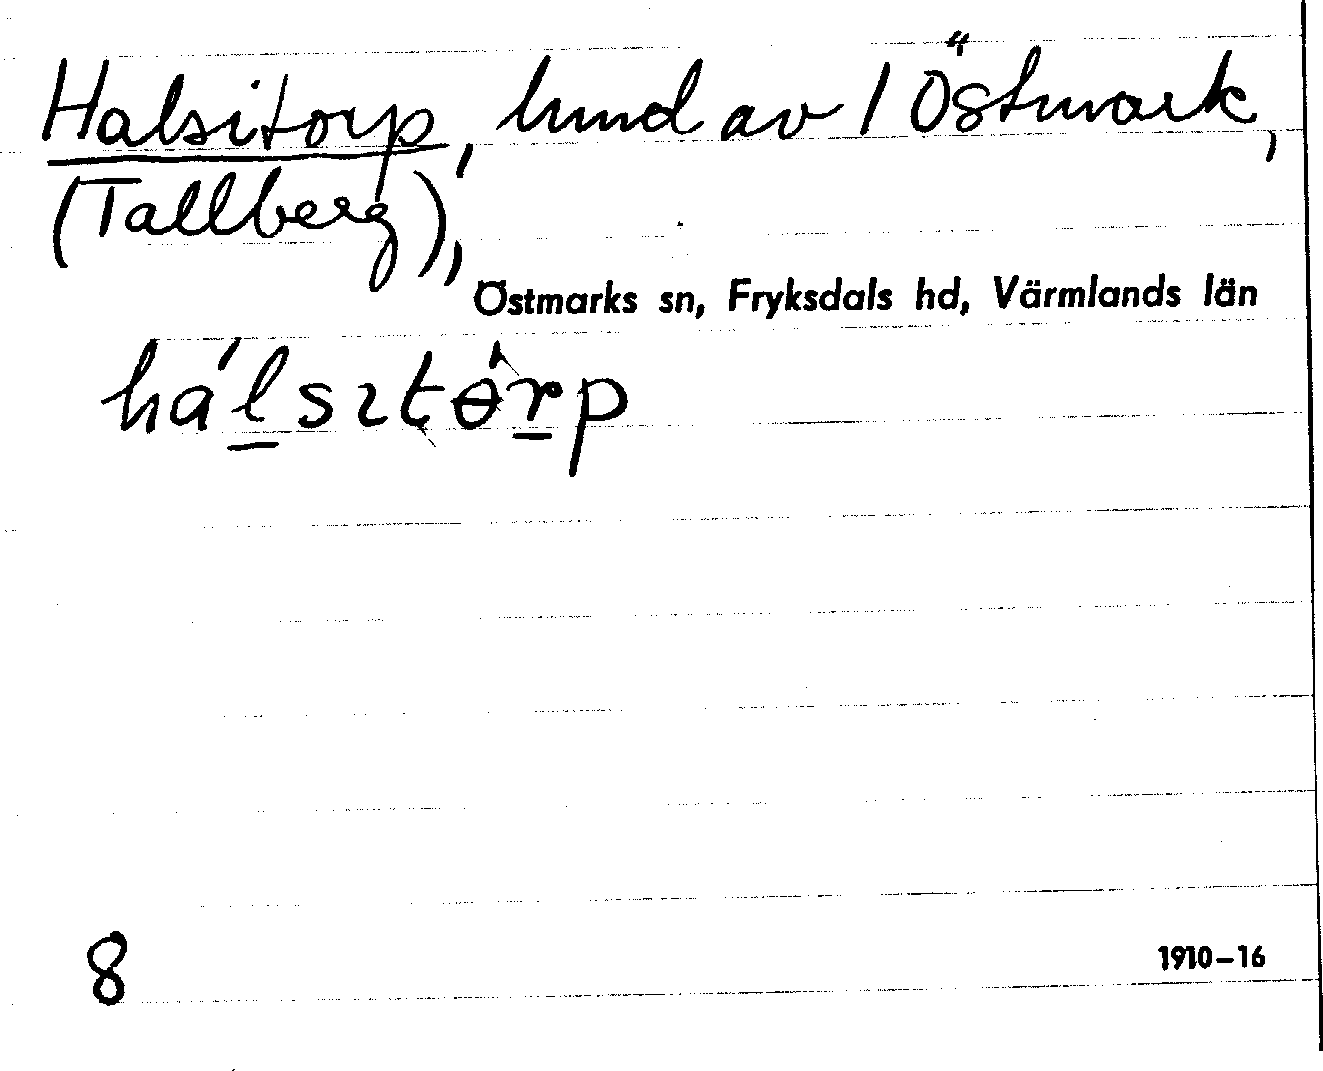 Halsitorp, hmd av 1 Östmark,
(Tallberg),
Östmarks sn, Fryksdals hd, Värmlands län
hálsɩtɵ̂rp
8
1910–16